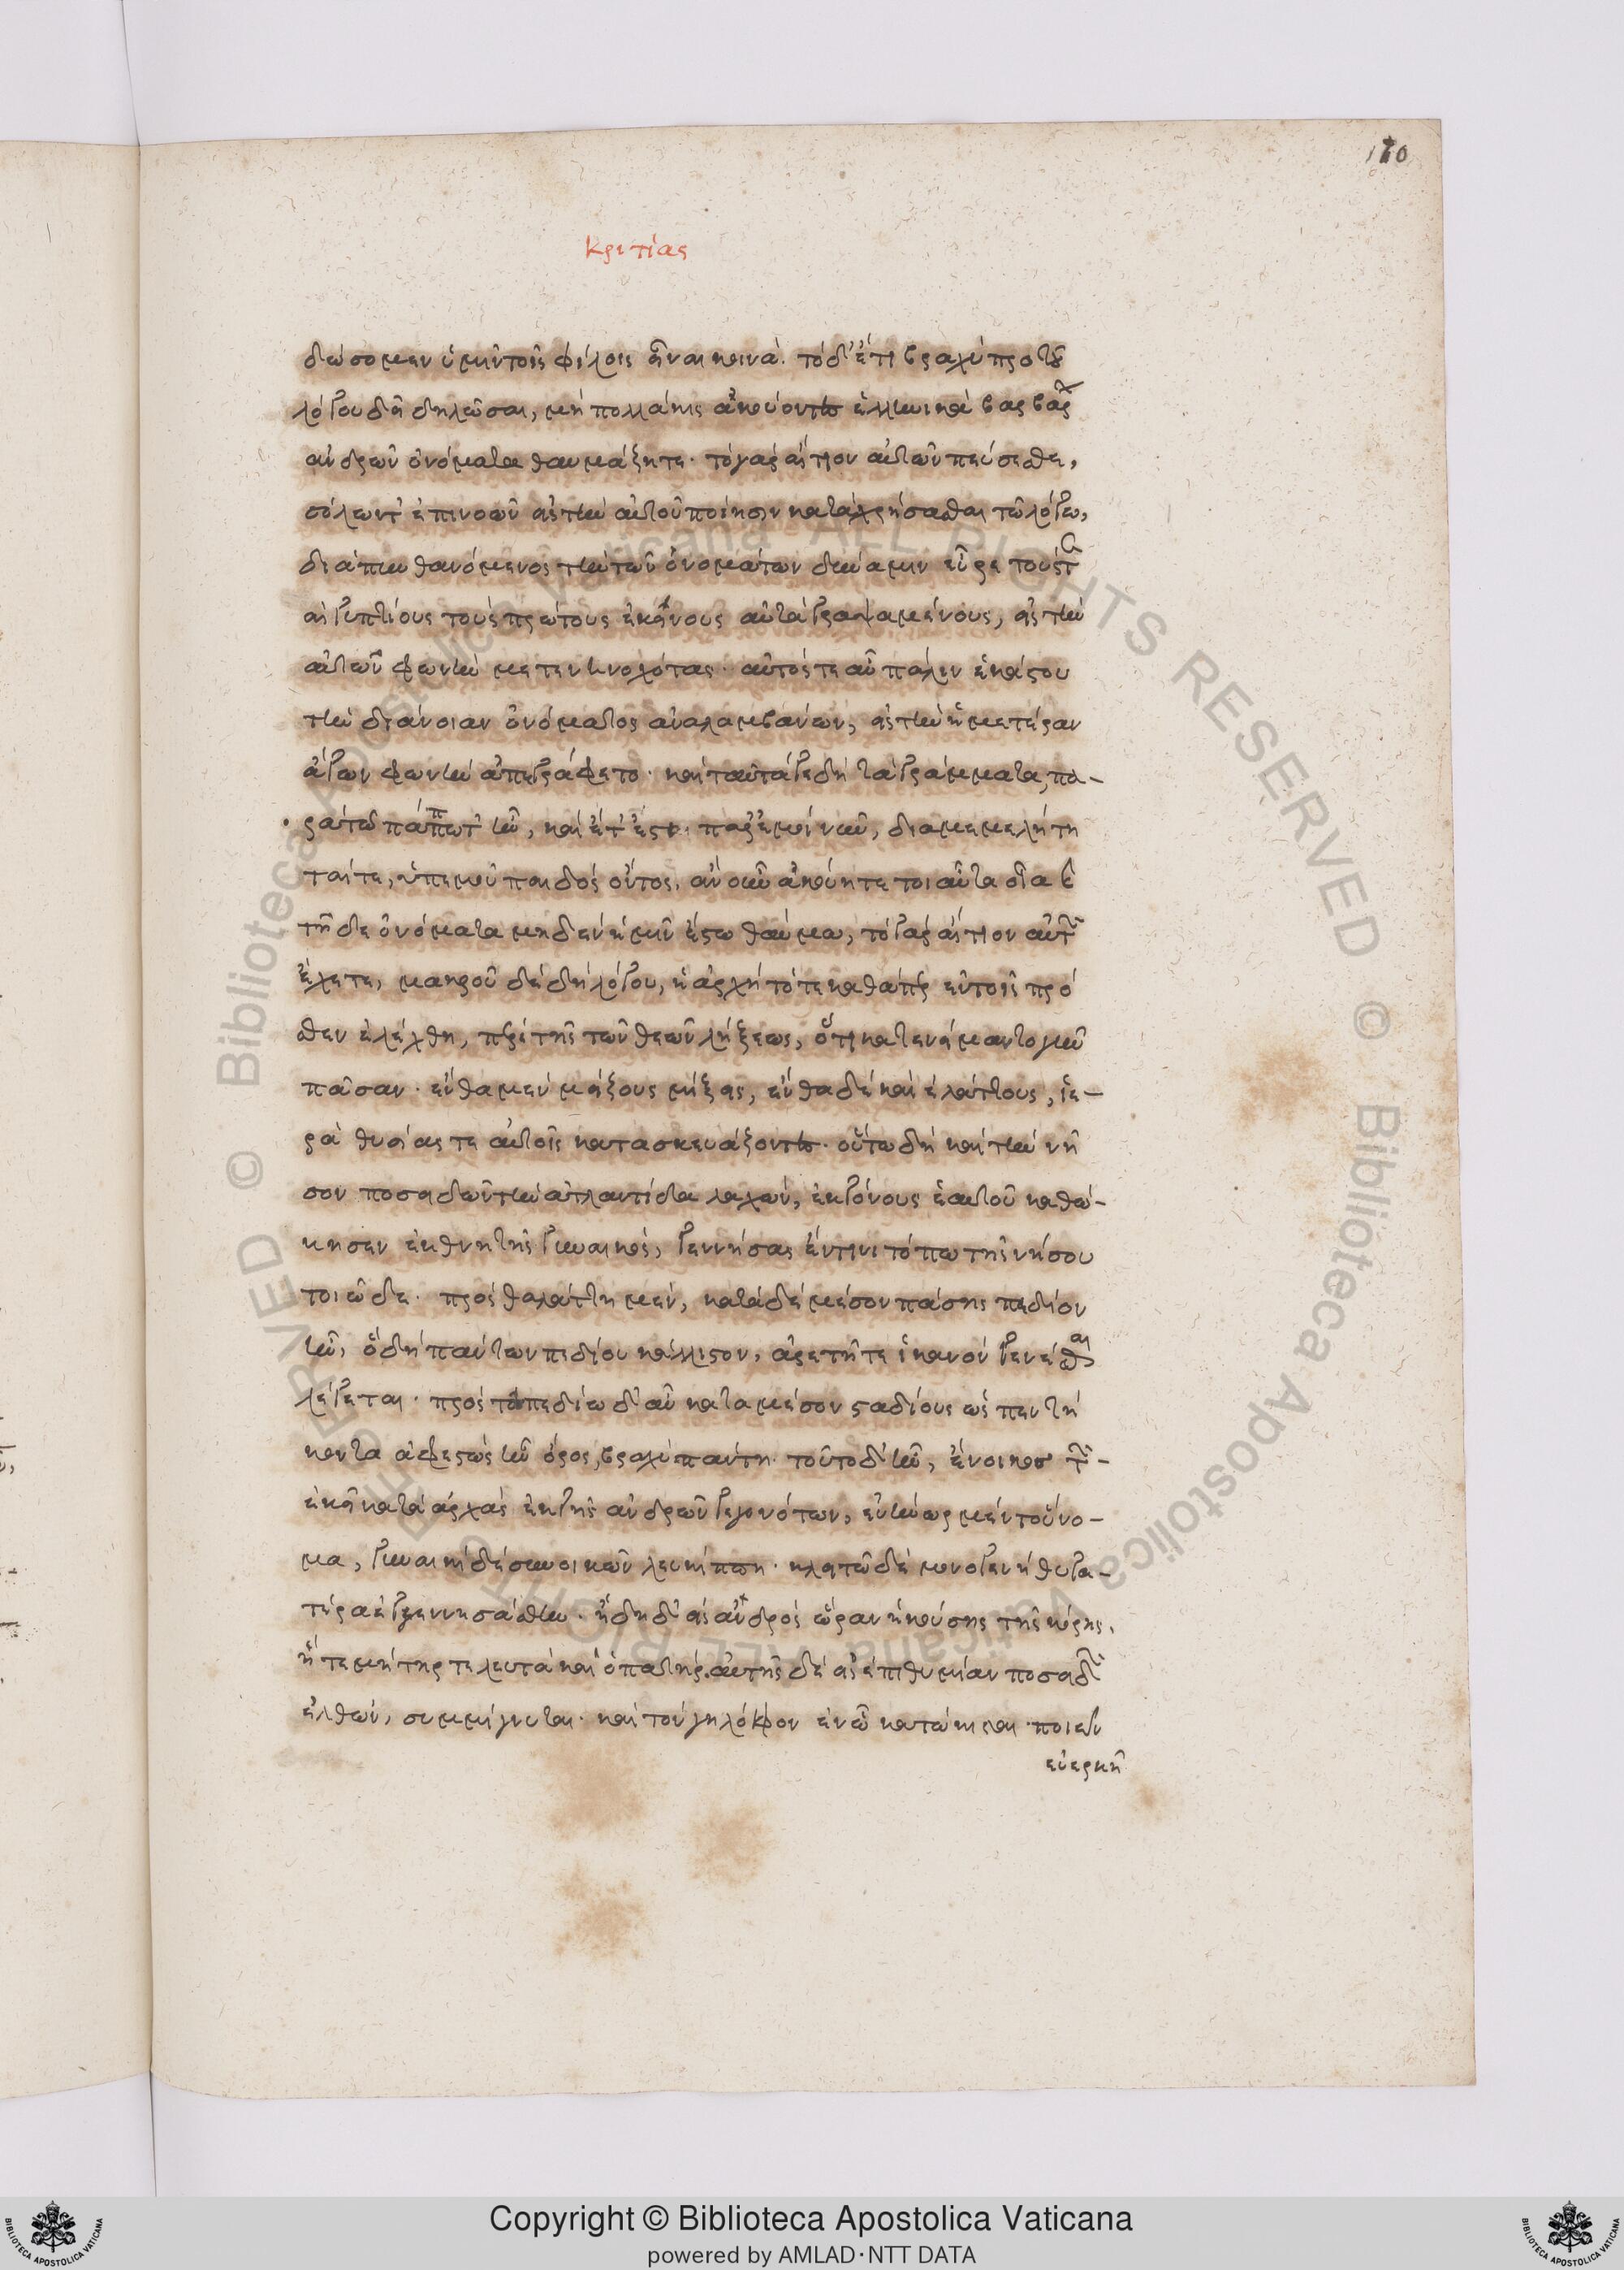 170
Κριτίας
δώσομεν ὑμῖν τοῖς φίλοις εἶναι κοινά. τὸ δ' ἔτι βραχὺ πρὸ τοῦ
λόγου δεῖ δηλῶσαι, μὴ πολλάκις ἀκούοντες ἑλληνικὰ βαρβάρων
ἀνδρῶν ὀνόματα θαυμάζητε. τὸ γὰρ αἴτιον αὐτῶν πεύσεσθε,
σόλων τ' ἐπινοῶν εἰς τὴν αὐτοῦ ποίησιν καταχρήσασθαι τῷ λόγῳ,
διαπυνθανόμενος τὴν τῶν ὀνομάτων δύναμιν εὗρε τούς τε
αἰγυπτίους τοὺς πρώτους ἐκείνους αὐτὰ γραψαμένους, εἰς τὴν
αὐτῶν φωνὴν μετενηνοχότας. αὐτός τε αὖ πάλιν ἑκάστου
τὴν διάνοιαν ὀνόματος ἀναλαμβάνων, εἰς τὴν ἡμετέραν
ἄγων φωνὴν ἀπεγράφετο. καὶ ταῦτά γε δὴ τὰ γράμματα, πα-
ρὰ τῷ πάππῳ τ' ἦν, καὶ ἔτ' ἐστὶ παρ' ἐμοὶ νῦν, διαμεμελέτη
ταί τε, ὑπ' ἐμοῦ παιδὸς ὄντος. ἂν οὖν ἀκούητε τοιαῦτα οἷα καὶ
τῇδε ὀνόματα μηδὲν ἡμῖν ἔστω θαῦμα, τὸ γὰρ αἴτιον αὐτῶν
ἔχετε, μακροῦ δὲ δὴ λόγου, ἡ ἀρχή τότε καθάπερ ἐν τοῖς πρό
σθεν ἐλέχθη, περὶ τῆς τῶν θεῶν λήξεως, ὅτι κατενείμαντο γῆν
πᾶσαν. ἔνθα μὲν μείζους λήξεις, ἔνθα δὲ καὶ ἐλάττους, ἱε-
ρὰ θυσίας τε αὐτοῖς κατασκευάζοντες. οὕτω δὴ καὶ τὴν νῆ
σον ποσειδῶν τὴν ἀτλαντίδα λαχών, ἐκγόνους ἑαυτοῦ κατώ-
κησεν ἐκ θνητῆς γυναικός, γεννήσας ἔν τινι τόπῳ τῆς νήσου
τοιῷδε. πρὸς θαλάττῃ μέν, κατὰ δὲ μέσον πάσης πεδίον
ἦν, ὃ δὴ πάντων πεδίων κάλλιστον, ἀρετῇ τε ἱκανὸν γενέσθαι
λέγεται. πρὸς τῷ πεδίῳ δ' αὖ κατὰ μέσον σταδίους ὡς πεντή
κοντα ἀφεστὼς ἦν ὄρος, βραχὺ πάντῃ. τούτῳ δ' ἦν, ἔνοικος τῶν
ἐκεῖ κατὰ ἀρχὰς ἐκ γῆς ἀνδρῶν γεγονότων, εὐήνωρ μὲν τοὔνο-
μα, γυναικὶ δὲ συνοικῶν λευκίππῃ. κλειτὼ δὲ μονογενῆ θυγα-
τέρα ἐγεννησάσθην. ἤδη δ' εἰς ἀνδρὸς ὥραν ἡκούσης τῆς κόρης,
ἥ τε μήτηρ τελευτᾷ καὶ ὁ πατήρ. αὐτῆς δὲ εἰς ἐπιθυμίαν ποσειδῶν
ἐλθών, συμμίγνυται. καὶ τὸν γήλοφον ἐν ᾧ κατῴκιστο ποιεῖν
εὐερκῆ